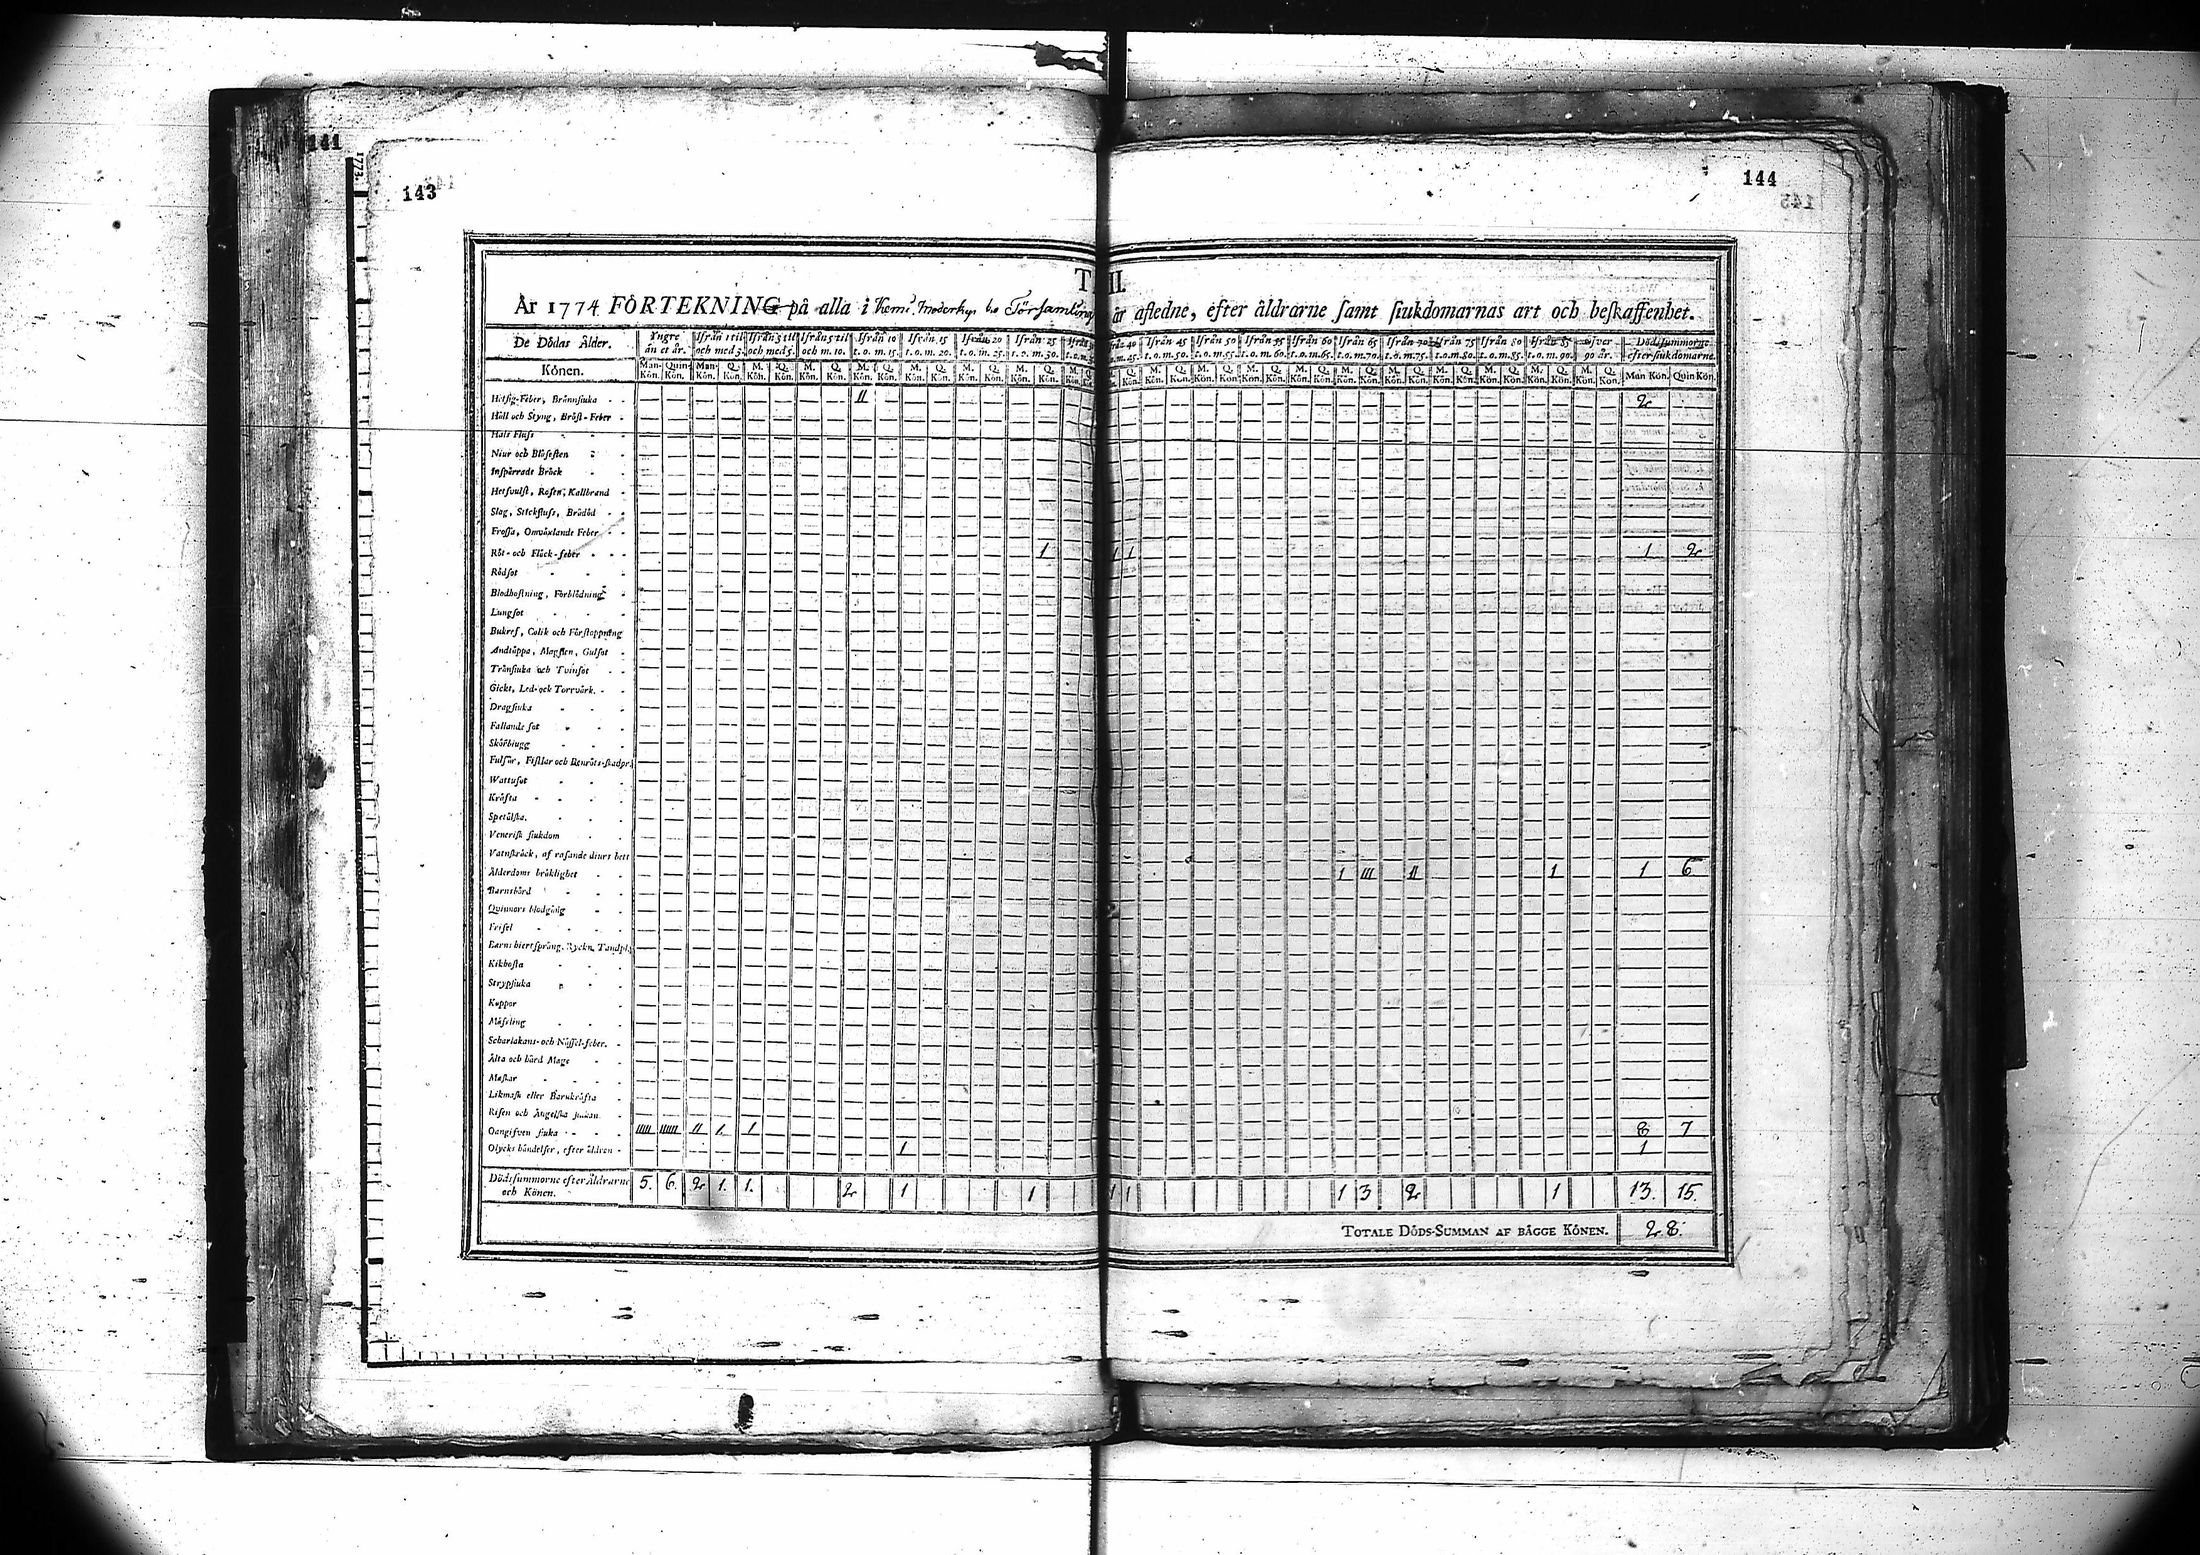 141
1773.
143
144
T III.
År 1774 FÖRTEKNING på alla i Kemi Moderkyrkio Församling i år afledne, efter åldrarne samt siukdomarnas art och beskaffenhet.
De Dödas Ålder. Yngre än et år. Ifrån 1 til och med 3. Ifrån 3 till och med 5. Ifrån 5 til och m. 10. Ifrån 10 t. o. m. 15. Ifrån 15 t. o. m. 20. Ifrån 20 t. o. m. 25. Ifrån 25 t. o. m. 30. från 40 t. o. m. 45. Ifrån 45 t. o. m. 50. Ifrån 50 t. o. m. 55. Ifrån 55 t. o. m. 60. Ifrån 60 t. o. m. 65. Ifrån 65 t. o. m. 70. Ifrån 70 t. o. m. 75. Ifrån 75 t. o. m. 80. Ifrån 80 t. o. m. 85. Ifrån 85 t. o. m. 90. öfver 90 år. Dödssummorne efter siukdomarne.
Könen. Man-Kön. Quin-Kön. Man-Kön. Q. Kön. M. Kön. Q. Kön. M. Kön. Q. Kön. M. Kön. Q. Kön. M. Kön. Q. Kön. M. Kön. Q. Kön. M. Kön. Q. Kön. Man Kön. Quin Kön.
Hetsig-Feber, Brännsiuka II 2
Håll och Styng, Bröst-Feber
Hals Fluss
Niur och Blåsesten
Inspärradt Bråck
Hetsvulst, Rosen, Kallbrand
Slag, Stickfluss, Brådöd
Frossa, Omväxlande Feber
Röt- och Fläck-feber 1 1 1 1 2
Rödsot
Blodhostning, Förblödning
Lungsot
Bukref, Colik och Förstoppning
Andtäppa, Magsten, Gulsot
Trånsiuka och Tvinsot
Gickt, Led- ock Torrvärk.
Dragsiuka
Fallande sot
Skörbiugg
Fulsår, Fistlar och Benröts-skador
Wattusot
Kräfta
Spetälska.
Venerisk siukdom
Vatnskräck, af rasande diurs bett
Ålderdoms bräklighet 1 III II 1 1 6
Barnsbörd
Quinnors blodgång
Frisel
Barns hiertsprång, Ryckn. Tandpl.
Kikhosta
Strypsiuka
Koppor
Mässling
Scharlakans- och Nässel-feber.
Älta och hård Mage
Maskar
Likmask eller Barnkräfta
Risen och Ängelska siukan
Oangifven siuka IIIII IIIIII II 1. 1 8 7
Olycks händelser, efter äldren 1 1
Dödssummorne efter Åldrarne och Könen. 5. 6. 2 1. 1. 2 1 1 1 1 1 3 2 1 13. 15.
TOTALE DÖDS-SUMMAN AF BÄGGE KÖNEN. 28.